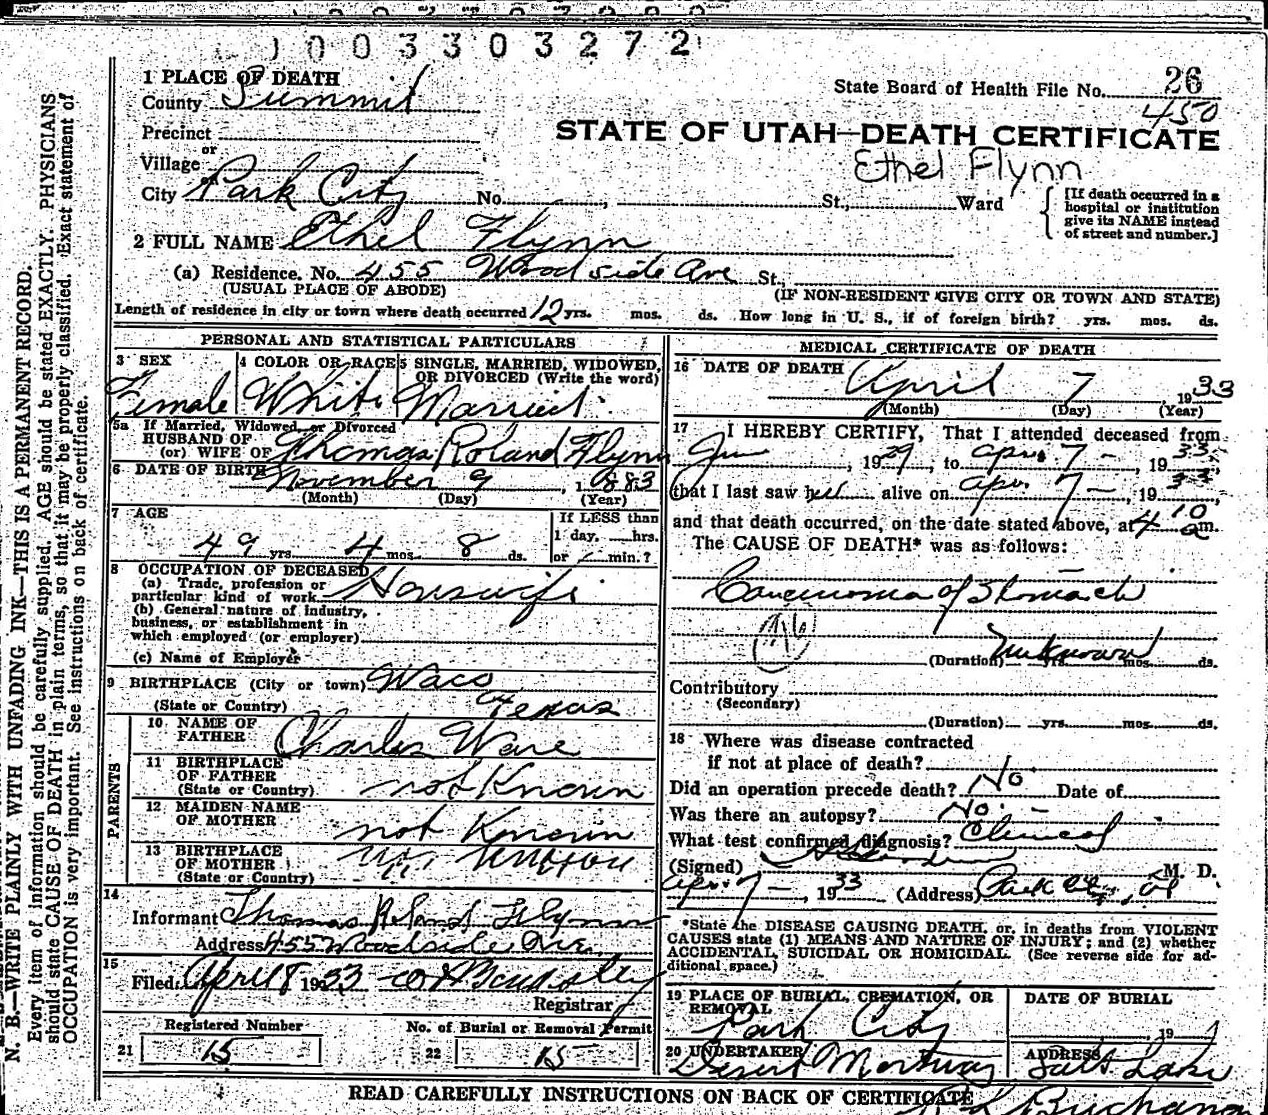 1003303272
1 PLACE OF DEATH
County Summit
State Board of Health File No. 26
450
Precinct
or
Village
STATE OF UTAH—DEATH CERTIFICATE
Ethel Flynn
City Park City No. , St., Ward
[If death occurred in a hospital or institution give its NAME instead of street and number.]
2 FULL NAME Ethel Flynn
(a) Residence. No. 455 Woodside Ave St.
(USUAL PLACE OF ABODE) (IF NON-RESIDENT GIVE CITY OR TOWN AND STATE)
Length of residence in city or town where death occurred 12 yrs. mos. ds. How long in U. S., if of foreign birth? yrs. mos. ds.
PERSONAL AND STATISTICAL PARTICULARS
3 SEX
Female
4 COLOR OR RACE
White
5 SINGLE, MARRIED, WIDOWED, OR DIVORCED (Write the word)
Married
5a If Married, Widowed, or Divorced
HUSBAND OF
(or) WIFE OF Thomas Roland Flynn
6 DATE OF BIRTH
November 9, 1883
(Month) (Day) (Year)
7 AGE
49 yrs. 4 mos. 8 ds.
If LESS than
1 day, hrs.
or min.?
8 OCCUPATION OF DECEASED
(a) Trade, profession or
particular kind of work Housewife
(b) General nature of industry,
business, or establishment in
which employed (or employer)
(c) Name of Employer
9 BIRTHPLACE (City or town) Waco
(State or Country) Texas
PARENTS
10 NAME OF
FATHER Charles Ware
11 BIRTHPLACE
OF FATHER
(State or Country) not Known
12 MAIDEN NAME
OF MOTHER not Known
13 BIRTHPLACE
OF MOTHER
(State or Country)
14
Informant Thomas Roland Flynn
Address 455 Woodside Ave.
15
Filed April 8 1933
Registrar
Registered Number
21 15
No. of Burial or Removal Permit
22 15
MEDICAL CERTIFICATE OF DEATH
16 DATE OF DEATH April 7 1933
(Month) (Day) (Year)
17 I HEREBY CERTIFY, That I attended deceased from
, 1929, to Apr. 7 —, 1933,
that I last saw her alive on Apr. 7 —, 1933,
and that death occurred, on the date stated above, at 4 10 a m.
The CAUSE OF DEATH* was as follows:
Carcinoma of Stomach
(Duration) Unknown yrs. mos. ds.
Contributory
(Secondary)
(Duration) yrs. mos. ds.
18 Where was disease contracted
if not at place of death?
Did an operation precede death? No Date of
Was there an autopsy? No. —
What test confirmed diagnosis? Clinical
(Signed) M. D.
Apr. 7 —, 1933 (Address) Park City, Ut
*State the DISEASE CAUSING DEATH, or, in deaths from VIOLENT
CAUSES state (1) MEANS AND NATURE OF INJURY; and (2) whether
ACCIDENTAL, SUICIDAL OR HOMICIDAL. (See reverse side for ad-
ditional space.)
19 PLACE OF BURIAL, CREMATION, OR
REMOVAL
Park City
DATE OF BURIAL
19
20 UNDERTAKER
Deseret Mortuary
ADDRESS
Salt Lake
READ CAREFULLY INSTRUCTIONS ON BACK OF CERTIFICATE
N. B.—WRITE PLAINLY WITH UNFADING INK—THIS IS A PERMANENT RECORD.
Every item of information should be carefully supplied. AGE should be stated EXACTLY. PHYSICIANS
should state CAUSE OF DEATH in plain terms, so that it may be properly classified. Exact statement of
OCCUPATION is very important. See instructions on back of certificate.